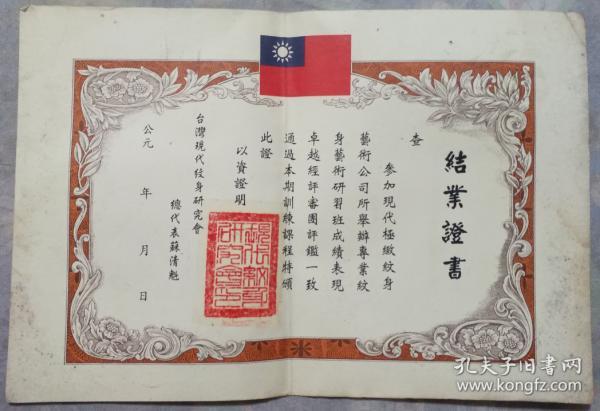 結業證書
查
參加現代極緻紋身
藝術公司所舉辦專業紋
身藝術研習班成績表現
卓越經評審團評鑑一致
通過本期訓練課程特頒
此證
以資證明
台灣現代紋身研究會
總代表蘇清魁
公元 年 月 日
孔夫子旧书网
www.kongfz.com